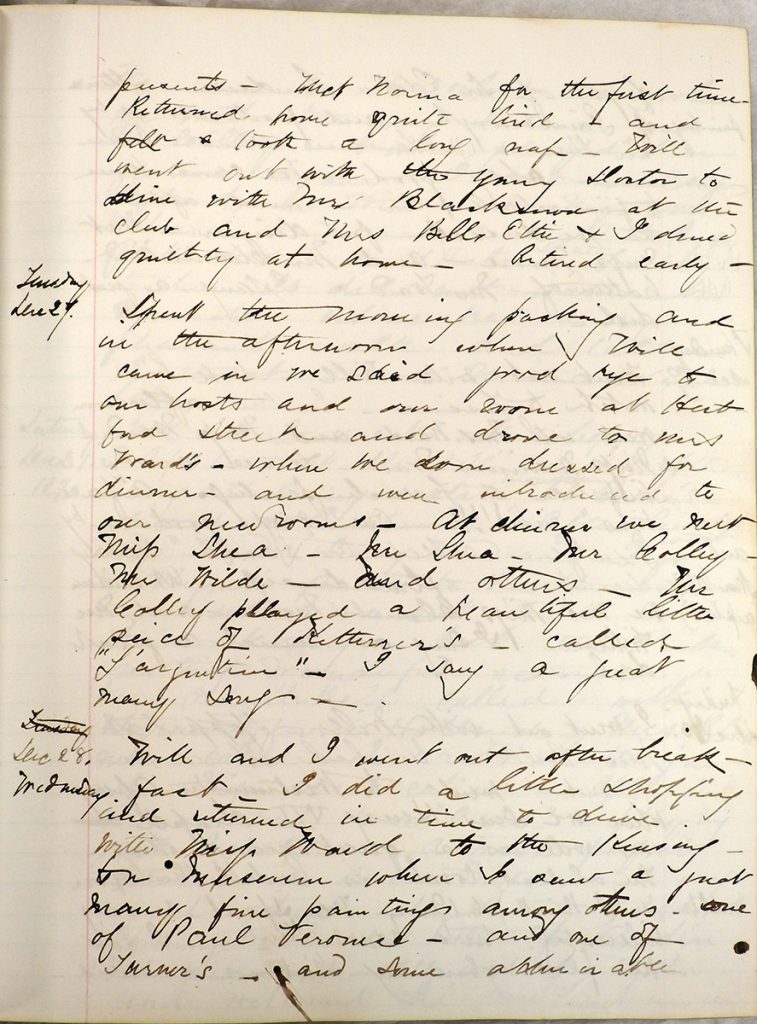 presents - Met Norma for the first time -
Returned home quite tired - and
felt & took a long nap - Will
went out with the Young Doctor to
dine with Mr at the
club and Mrs Bells Ettie & I dined
quietly at home - Retired early -
Tuesday
Dec 27.
Spent the morning packing and
in the afternoon when Will
came in we said good bye to
our hosts and our rooms at Hert
ford Street and drove to Mrs
Ward's - where we soon dressed for
dinner - and were introduced to
our new rooms - At dinner we met
Miss Shea - Mr Shea - Mr Colley -
Mr Wilde - and others - Mr
Colley played a beautiful little
peice of - called
"L'argentine" - I sang a great
many songs -
Tuesday
Dec 28.
Wednesday
Will and I went out after break-
fast I did a little shopping
and returned in time to drive
with Miss Ward to the Kensing-
ton Museum where I saw a great
many fine paintings among others - one
of Paul Veronese - and one of
Turner's - and some admirable